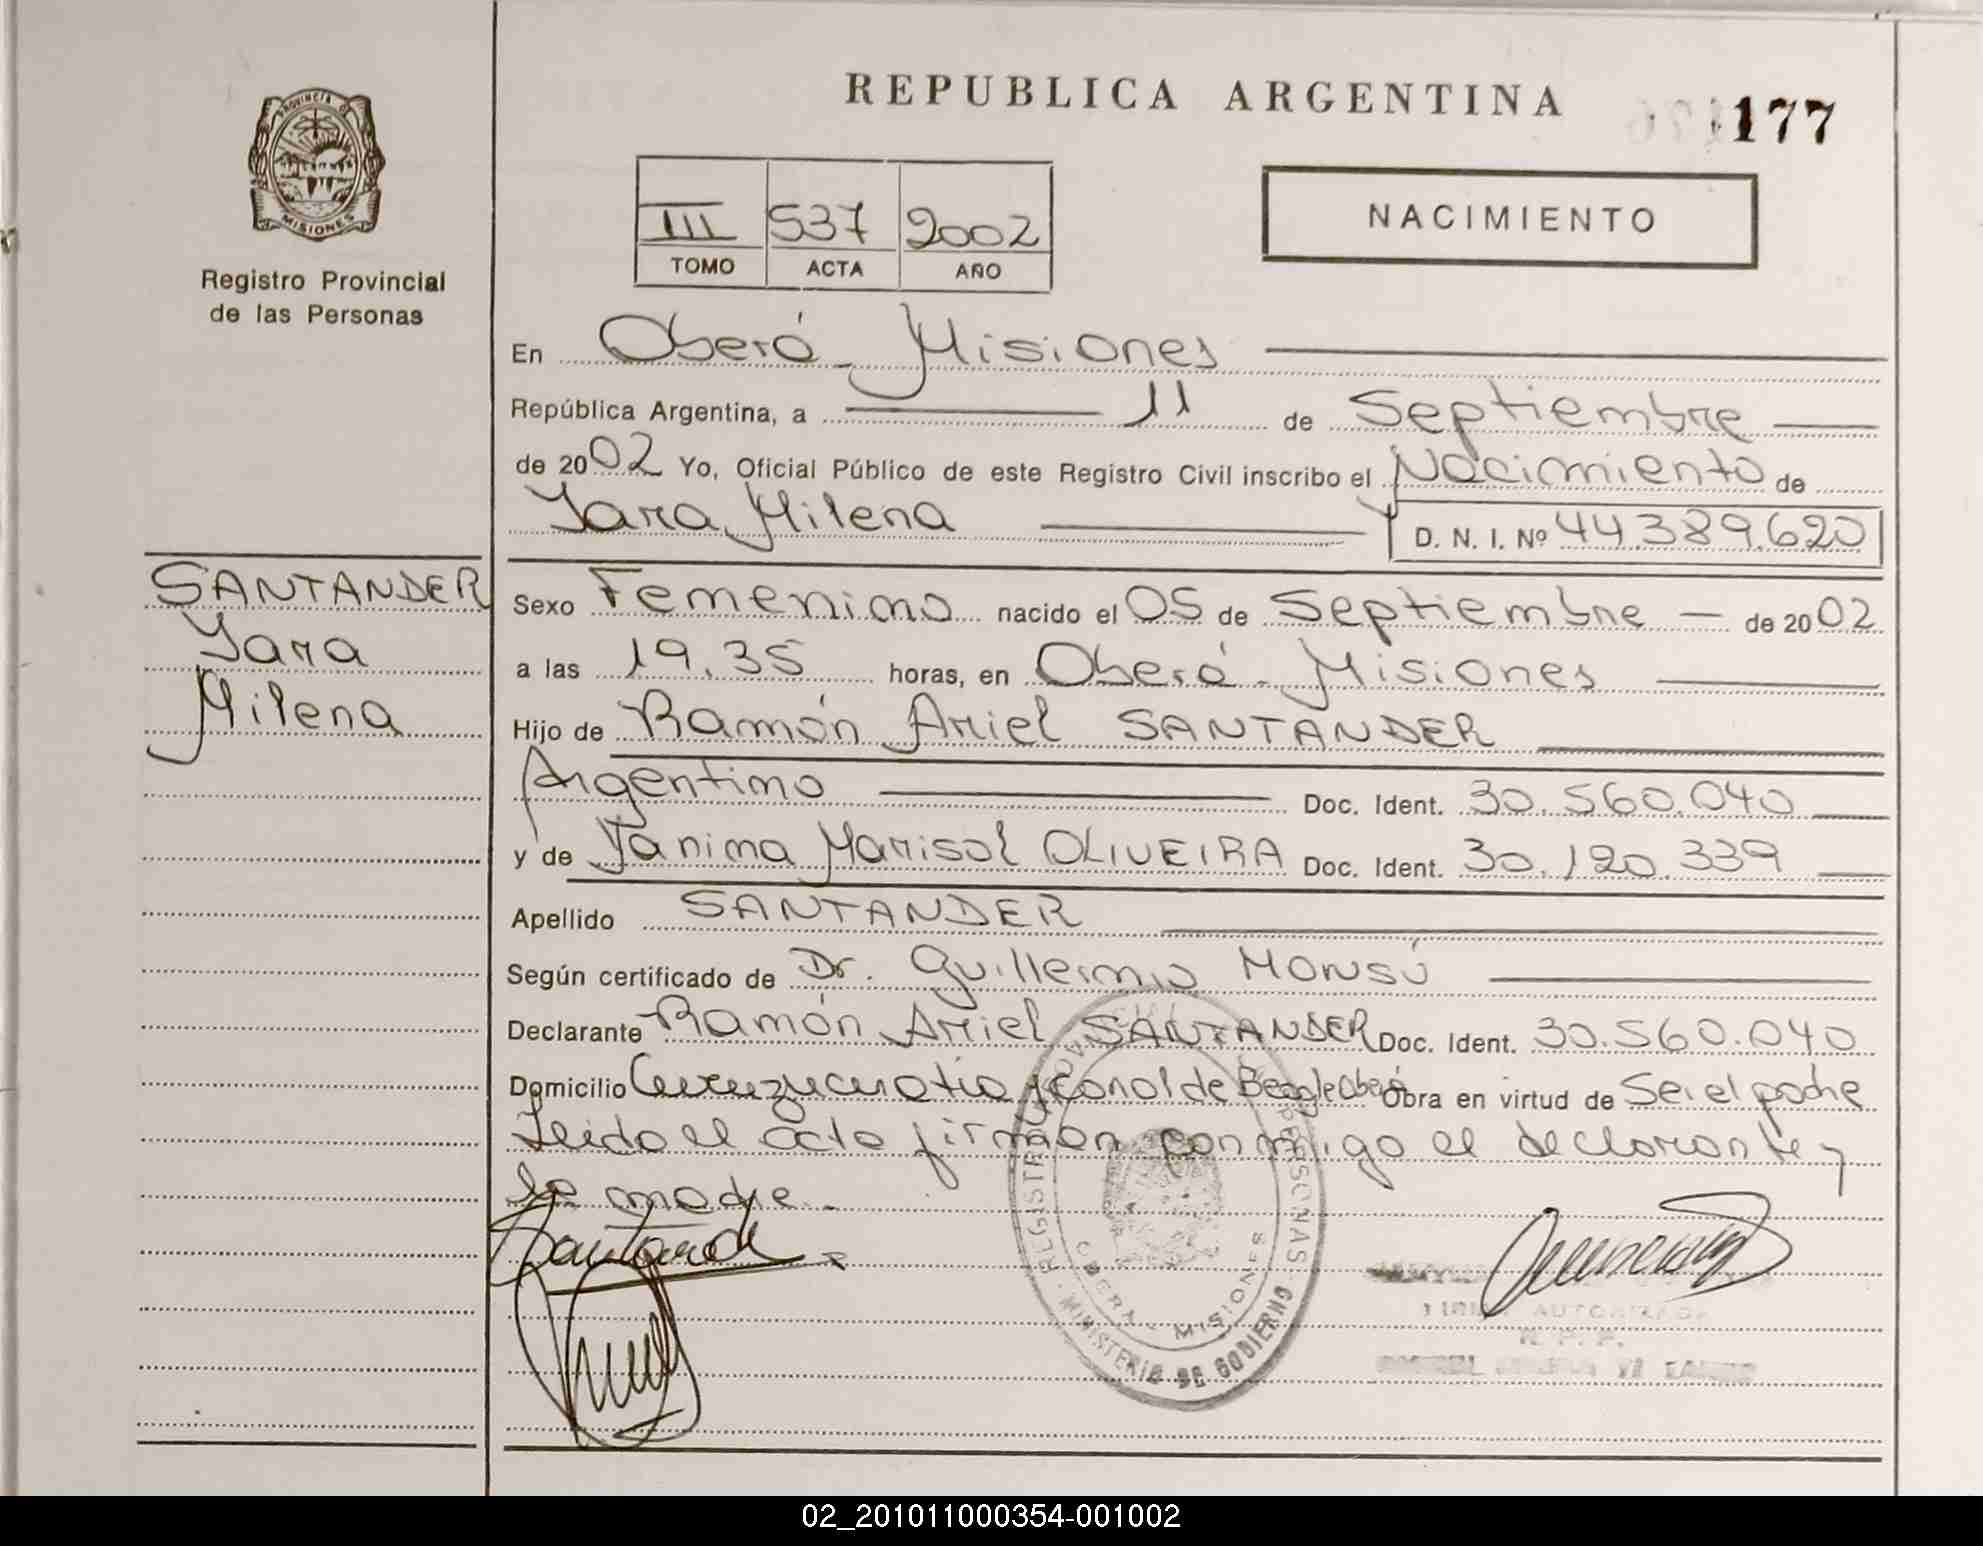 REPUBLICA ARGENTINA
177
PROVINCIA DE
MISIONES
Registro Provincial
de las Personas
III 537 2002
TOMO ACTA AÑO
NACIMIENTO
En Oberá - Misiones
República Argentina, a 11 de Septiembre
de 2002 Yo, Oficial Público de este Registro Civil inscribo el Nacimiento de
Yara Milena
D. N. I. Nº 44.389.620
SANTANDER
Yara
Milena
Sexo Femenino nacido el 05 de Septiembre - de 2002
a las 19.35 horas, en Oberá - Misiones
Hijo de Ramón Ariel SANTANDER
Argentino Doc. Ident. 30.560.040
y de Yanina Marisol OLIVEIRA Doc. Ident. 30.120.339
Apellido SANTANDER
Según certificado de Dr. Guillermo Monsú
Declarante Ramón Ariel SANTANDER Doc. Ident. 30.560.040
Domicilio y Canal de Beagle Oberá Obra en virtud de Ser el padre
Leido el acta firman conmigo el declarante y
la madre.
REGISTRO PROVINCIAL PERSONAS
OBERA - MISIONES
MINISTERIO DE GOBIERNO
AUTORIZADA
R. P. P.
02_201011000354-001002